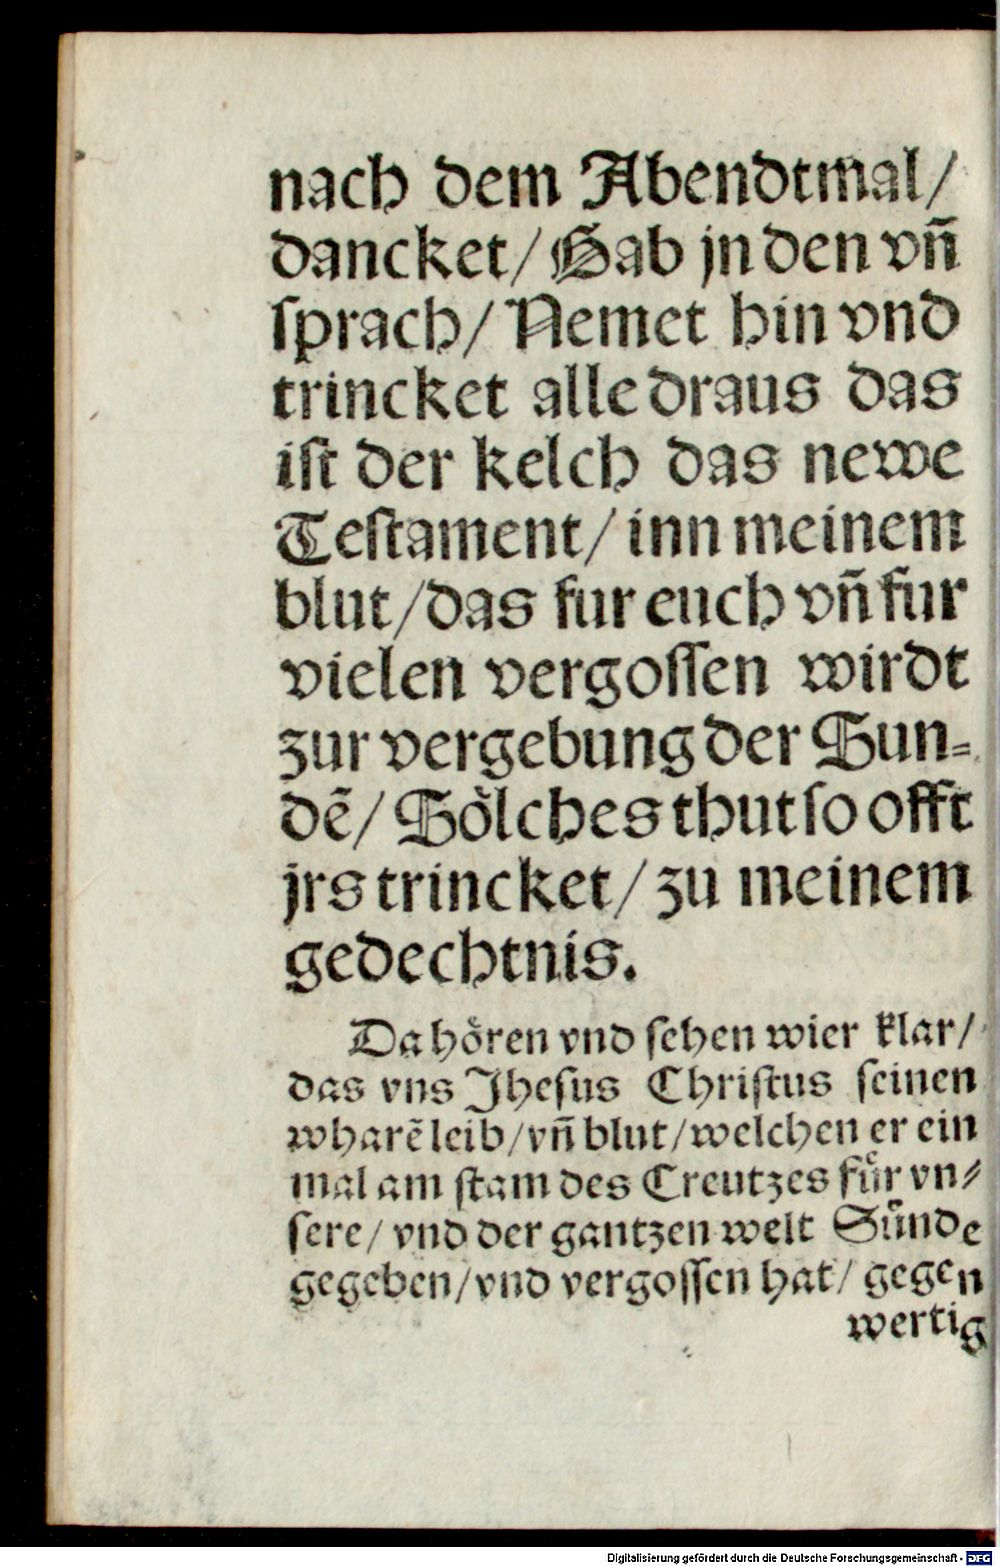 nach dem Abendtmal/
dancket/ Gab jn den vn̄
ſprach/ Nemet hin vnd
trincket alle draus das
iſt der kelch das newe
Teſtament/ inn meinem
blut/das fur euch vn̄ fur
vielen vergoſſen wirdt
zur vergebung der Sun=
dē/ Soͤlches thut ſo offt
jrs trincket/ zu meinem
gedechtnis.
Da hoͤren vnd ſehen wier klar/
das vns Jheſus Chriſtus ſeinen
wharē leib/vn̄ blut/welchen er ein
mal am ſtam des Creutzes fuͤr vn⸗
ſere/ vnd der gantzen welt Suͤnde
gegeben/vnd vergoſſen hat/ gegen
wertig
Digitalisierung gefördert durch die Deutsche Forschungsgemeinschaft - DFG